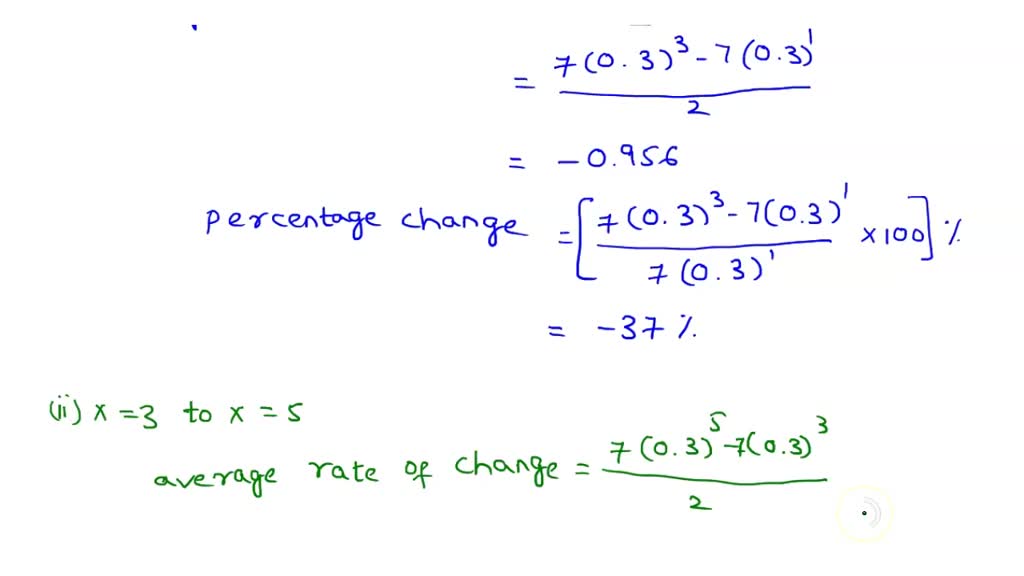 = (7(0.3)³ - 7(0.3)¹) / 2
= -0.956
percentage change = [(7(0.3)³ - 7(0.3)¹) / (7(0.3)¹) × 100] %
= -37 %
(ii) x = 3 to x = 5
average rate of change = (7(0.3)⁵ - 7(0.3)³) / 2